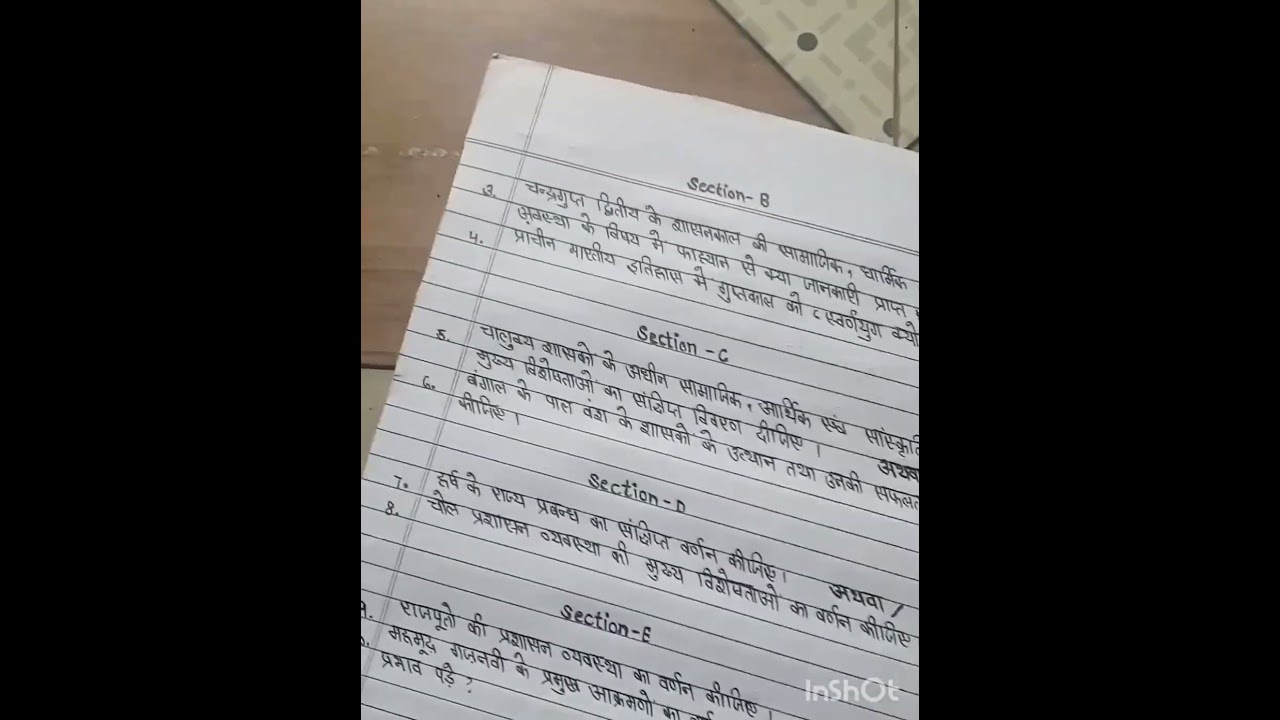 Section- B
3. चन्द्रगुप्त द्वितीय के शासनकाल की सामाजिक, धार्मिक
अवस्था के विषय में फाह्यान से क्या जानकारी प्राप्त
4. प्राचीन भारतीय इतिहास में गुप्तकाल को स्वर्णयुग क्यो
Section -C
5. चालुक्य शासको के अधीन सामाजिक, आर्थिक एवं सांस्कृति
मुख्य विशेषताओ का संक्षिप्त विवरण दीजिए। अथवा
6. बंगाल के पाल वंश के शासको के उत्थान तथा उनकी सफलत
कीजिए।
Section -D
7. हर्ष के राज्य प्रबन्ध का संक्षिप्त वर्णन कीजिए। अथवा/
8. चोल प्रशासन व्यवस्था की मुख्य विशेषताओ का वर्णन कीजिए
Section-E
राजपूतो की प्रशासन व्यवस्था का वर्णन कीजिए।
महमूद गजनवी के प्रमुख आक्रमणो का
प्रभाव पड़े?
InShOt